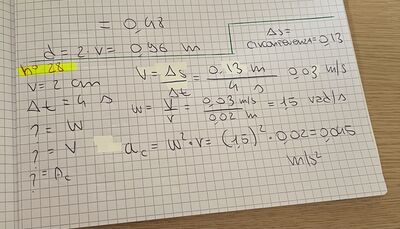 = 0,48
d = 2·v = 0,96 m
Δs = circonferenza = 0,13
n° 28
r = 2 cm
Δt = 4 s
? = W
? = V
? = Ac
V = Δs/Δt = 0,13 m / 4 s = 0,03 m/s
w = V/r = 0,03 m/s / 0,02 m = 1,5 rad/s
ac = w²·r = (1,5)²·0,02 = 0,045
m/s²